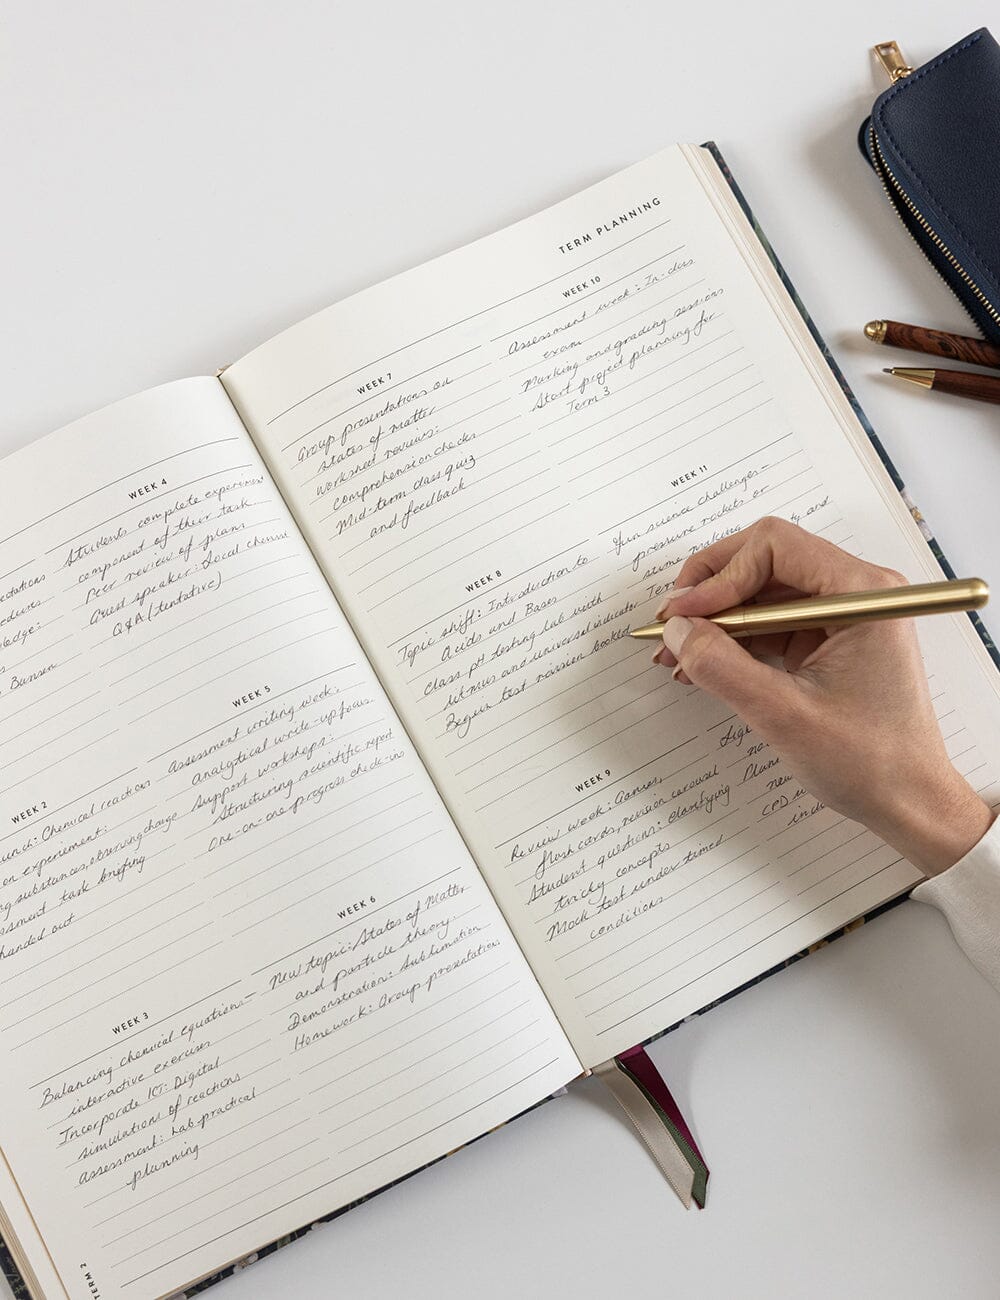 TERM PLANNING
WEEK 4
Students complete experiment
component of their task
Peer review of plans
Guest speaker: Local
Q&A (tentative)
WEEK 5
Assessment writing week:
analytical write-up focus
Support workshops:
Structuring scientific report
One-on-one progress check-ins
WEEK 2
Chemical reactions
on experiment:
substances, observing change
task briefing
handed out
Bunsen
WEEK 3
Balancing chemical equations-
interactive exercises
Incorporate ICT: Digital
simulations of reactions
Assessment: Lab practical
planning
WEEK 6
New topic: States of Matter
and particle theory
Demonstration: Sublimation
Homework: Group presentations
TERM 2
WEEK 7
Group presentations on
states of matter
Worksheet reviews:
comprehension checks
Mid-term class quiz
and feedback
WEEK 8
Topic shift: Introduction to
Acids and Bases
Class pH testing lab with
litmus and universal indicator
Begin test revision booklet
WEEK 9
Review week: Games,
flashcards, revision carousel
Student questions: Clarifying
tricky concepts
Mock test under timed
conditions
WEEK 10
Assessment week: In-class
exam
Marking and grading sessions
Start project planning for
Term 3
WEEK 11
Fun science challenges-
pressure rockets or
slime making
and